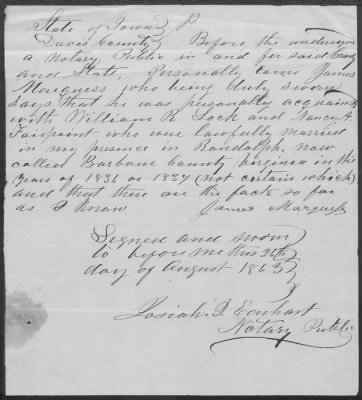 State of Iowa }
Davis County } Before the undersigned
a Notary Public in and for said County
and State, Personally came James
Marquess who being duly sworn
says that he was personally acquainted
with William R Lock and Nancy A.
Fairpoint who were lawfully married
in my presence in Randolph, now
called Barbour County Virginia in the
Years of 1836 or 1837 (not certain which)
and that these are the facts so far
as I know James Marquess
Signed and sworn
to before me this 26th
day of August 1863
Josiah Earhart
Notary Public